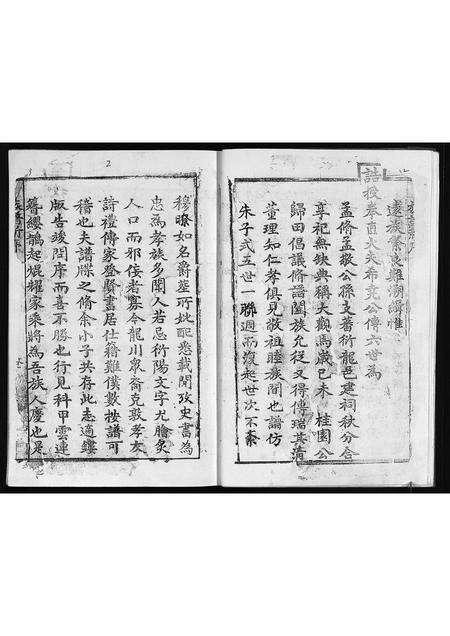 遠族繁衍難溯緝惟
誥授奉直大夫希堯公傳六世為
孟脩孟敬公孫支蕃衍龍邑建祠秋分合
享祀無缺典稱大觀焉歲己未 桂園公
歸田倡議修譜闔族允從又得傅瑞其清
董理知仁孝俱見敬祖睦族間也譜仿
朱子式五世一聯週而復起世次不紊
2
穆瞭如名爵塋所妣配悉載閱攷史書為
忠為孝族多聞人若忌衍陽文字尤膾炙
人口而邪佞者寡今龍川眾裔克敦孝友
詩禮傳家登賢書居仕籍難僕數按譜可
稽也夫譜牒之脩余小子共存此志適鏤
版告竣閱序而喜不勝也行見科甲雲連
簪纓鵲起焜耀家乘將為吾族人慶也是